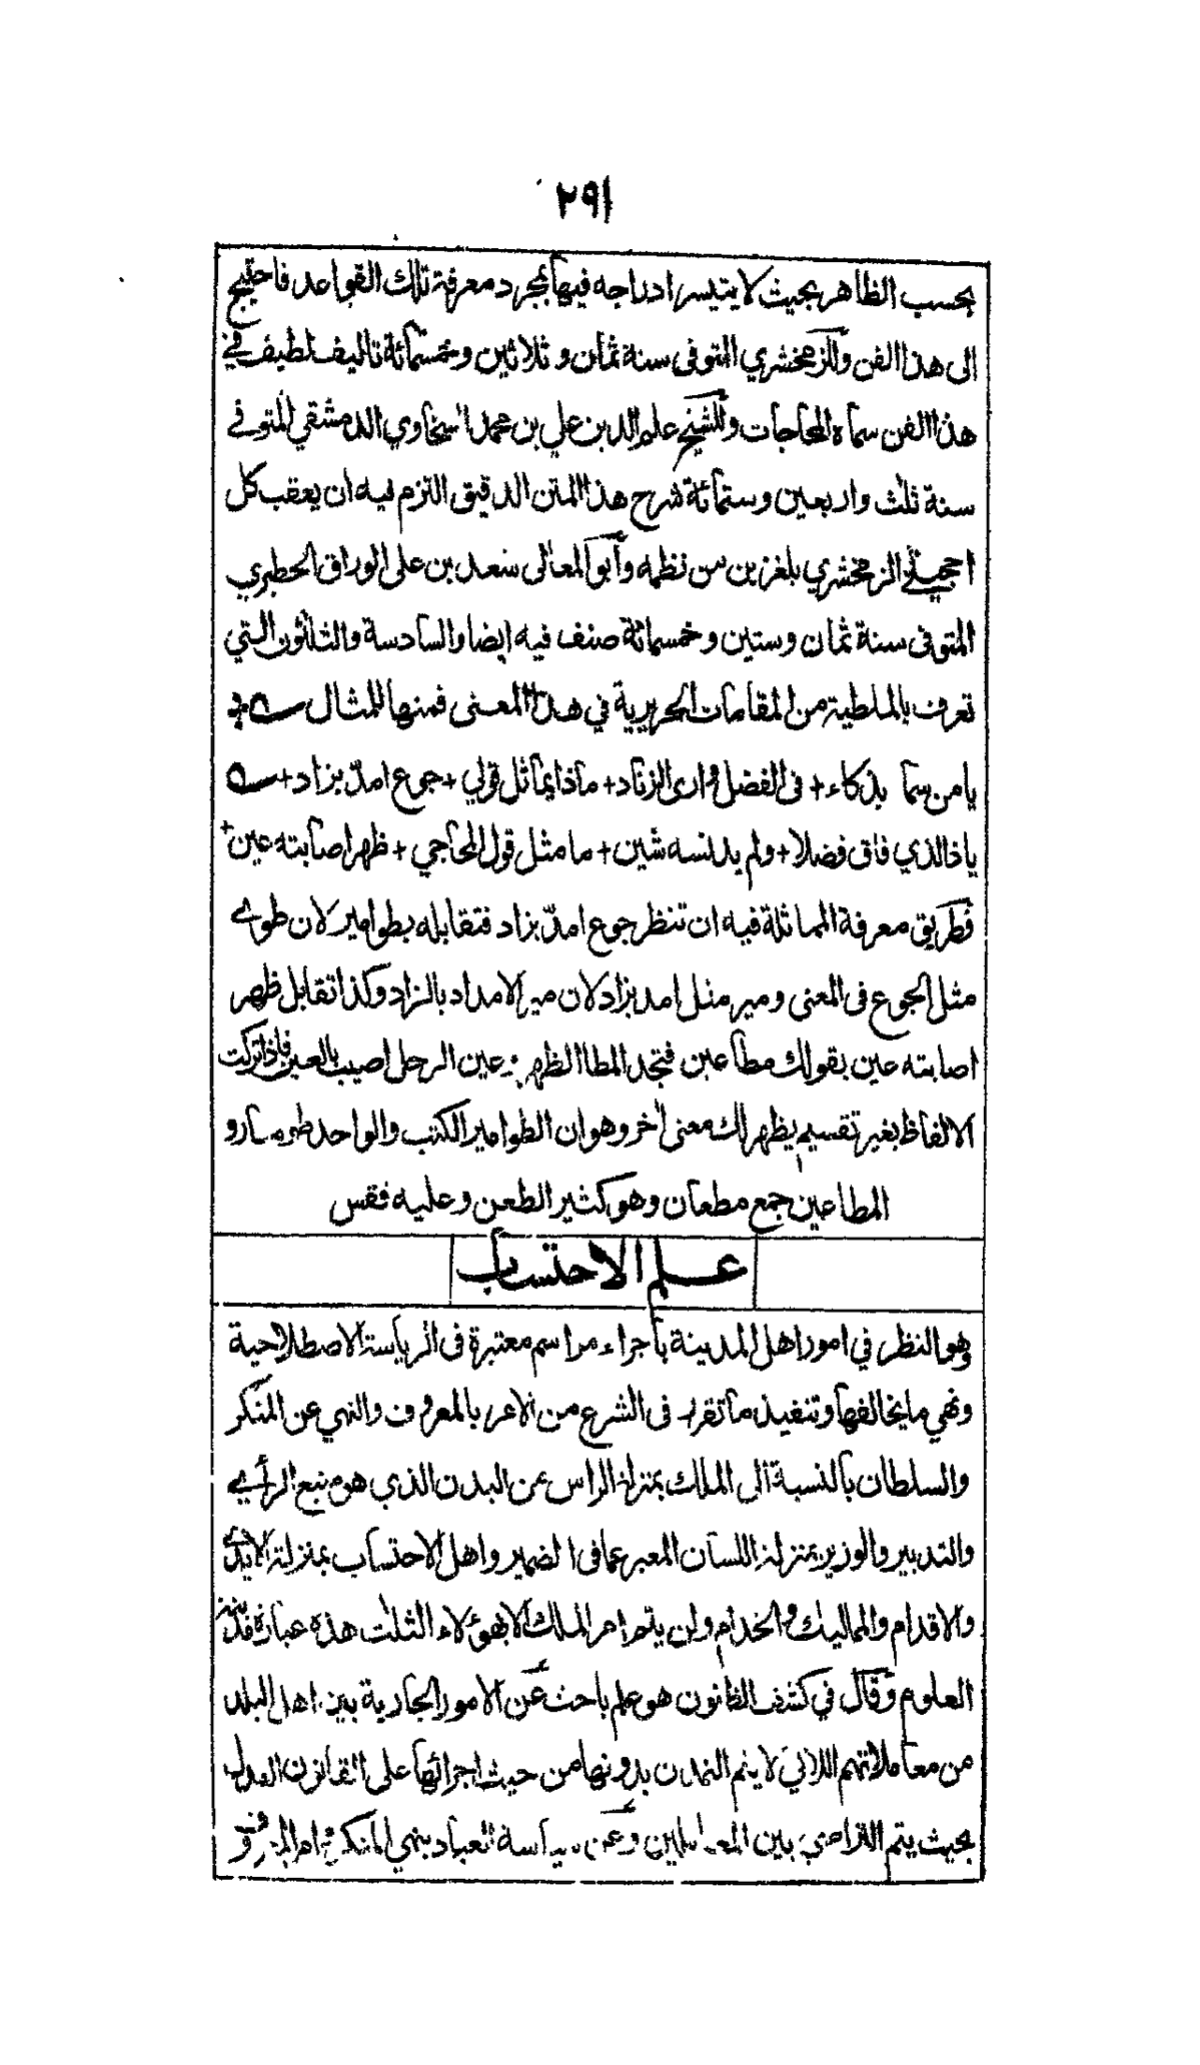 ٢٩١
بحسب الظاهر بحيث لا يتيسر ادراجه فيها بمجرد معرفة تلك القواعد فاحتيج
الى هذا الفن وللزمخشري المتوفى سنة ثمان وثلاثين وخمسمائة تاليف لطيف في
هذا الفن سماه المحاجات وللشيخ علم الدين علي بن محمد السخاوي الدمشقي المتوفى
سنة ثلث واربعين وستمائة شرح هذا المتن الدقيق التزم فيه ان يعقب كل
احجيتي الزمخشري بلغزين من نظمه وأبو المعالى سعد بن على الوراق الحطيري
المتوفى سنة ثمان وستين وخمسمائة صنف فيه ايضا والسادسة والثلثون التي
تعرف بالملطية من المقامات الحريرية في هذا المعنى فمنها للمثال ــه +
يا من سما بذكاء + فى الفضل وارى الزناد + ماذا يماثل قولي + جوع امدّ بزاد + ــه
يا ذا الذي فاق فضلا + ولم يدنسه شين + ما مثل قول المحاجي + ظهر اصابته عين +
فطريق معرفة المماثلة فيه ان تنظر جوع امدّ بزاد فتقابله بطوامير لان طوى
مثل الجوع فى المعنى ومير مثل امد بزاد لان مير الامداد بالزاد وكذا تقابل ظهر
اصابته عين بقولك مطاعين فتجد المطا الظهر وعين الرجل اصيب بالعين فاذا تركت
الالفاظ بغير تقسيم يظهر لك معنى آخر وهو ان الطوامير الكتب والواحد طومار و
المطاعين جمع مطعان وهو كثير الطعن وعليه فقس
علم الاحتساب
وهو النظر في امور اهل المدينة باجراء مراسم معتبرة فى الرياسة الاصطلاحية
ونهي ما يخالفها وتنفيذ ما تقرر فى الشرع من الامر بالمعروف والنهي عن المنكر
والسلطان بالنسبة الى الملك بمنزلة الراس من البدن الذي هو منبع الرأي
والتدبير والوزير بمنزلة اللسان المعبر عما فى الضمير واهل الاحتساب بمنزلة الايدي
والاقدام والمماليك والخدام ولن يتم امر الملك الا بهؤلاء الثلث هذه عبارة مدينة
العلوم وقال في كشف الظنون هو علم باحث عن الامور الجارية بين اهل البلد
من معاملاتهم اللاتي لا يتم التمدن بدونها من حيث اجرائها على القانون العدل
بحيث يتم التراضي بين المعاملين وعن سياسة العباد بنهي المنكر وامر المعروف